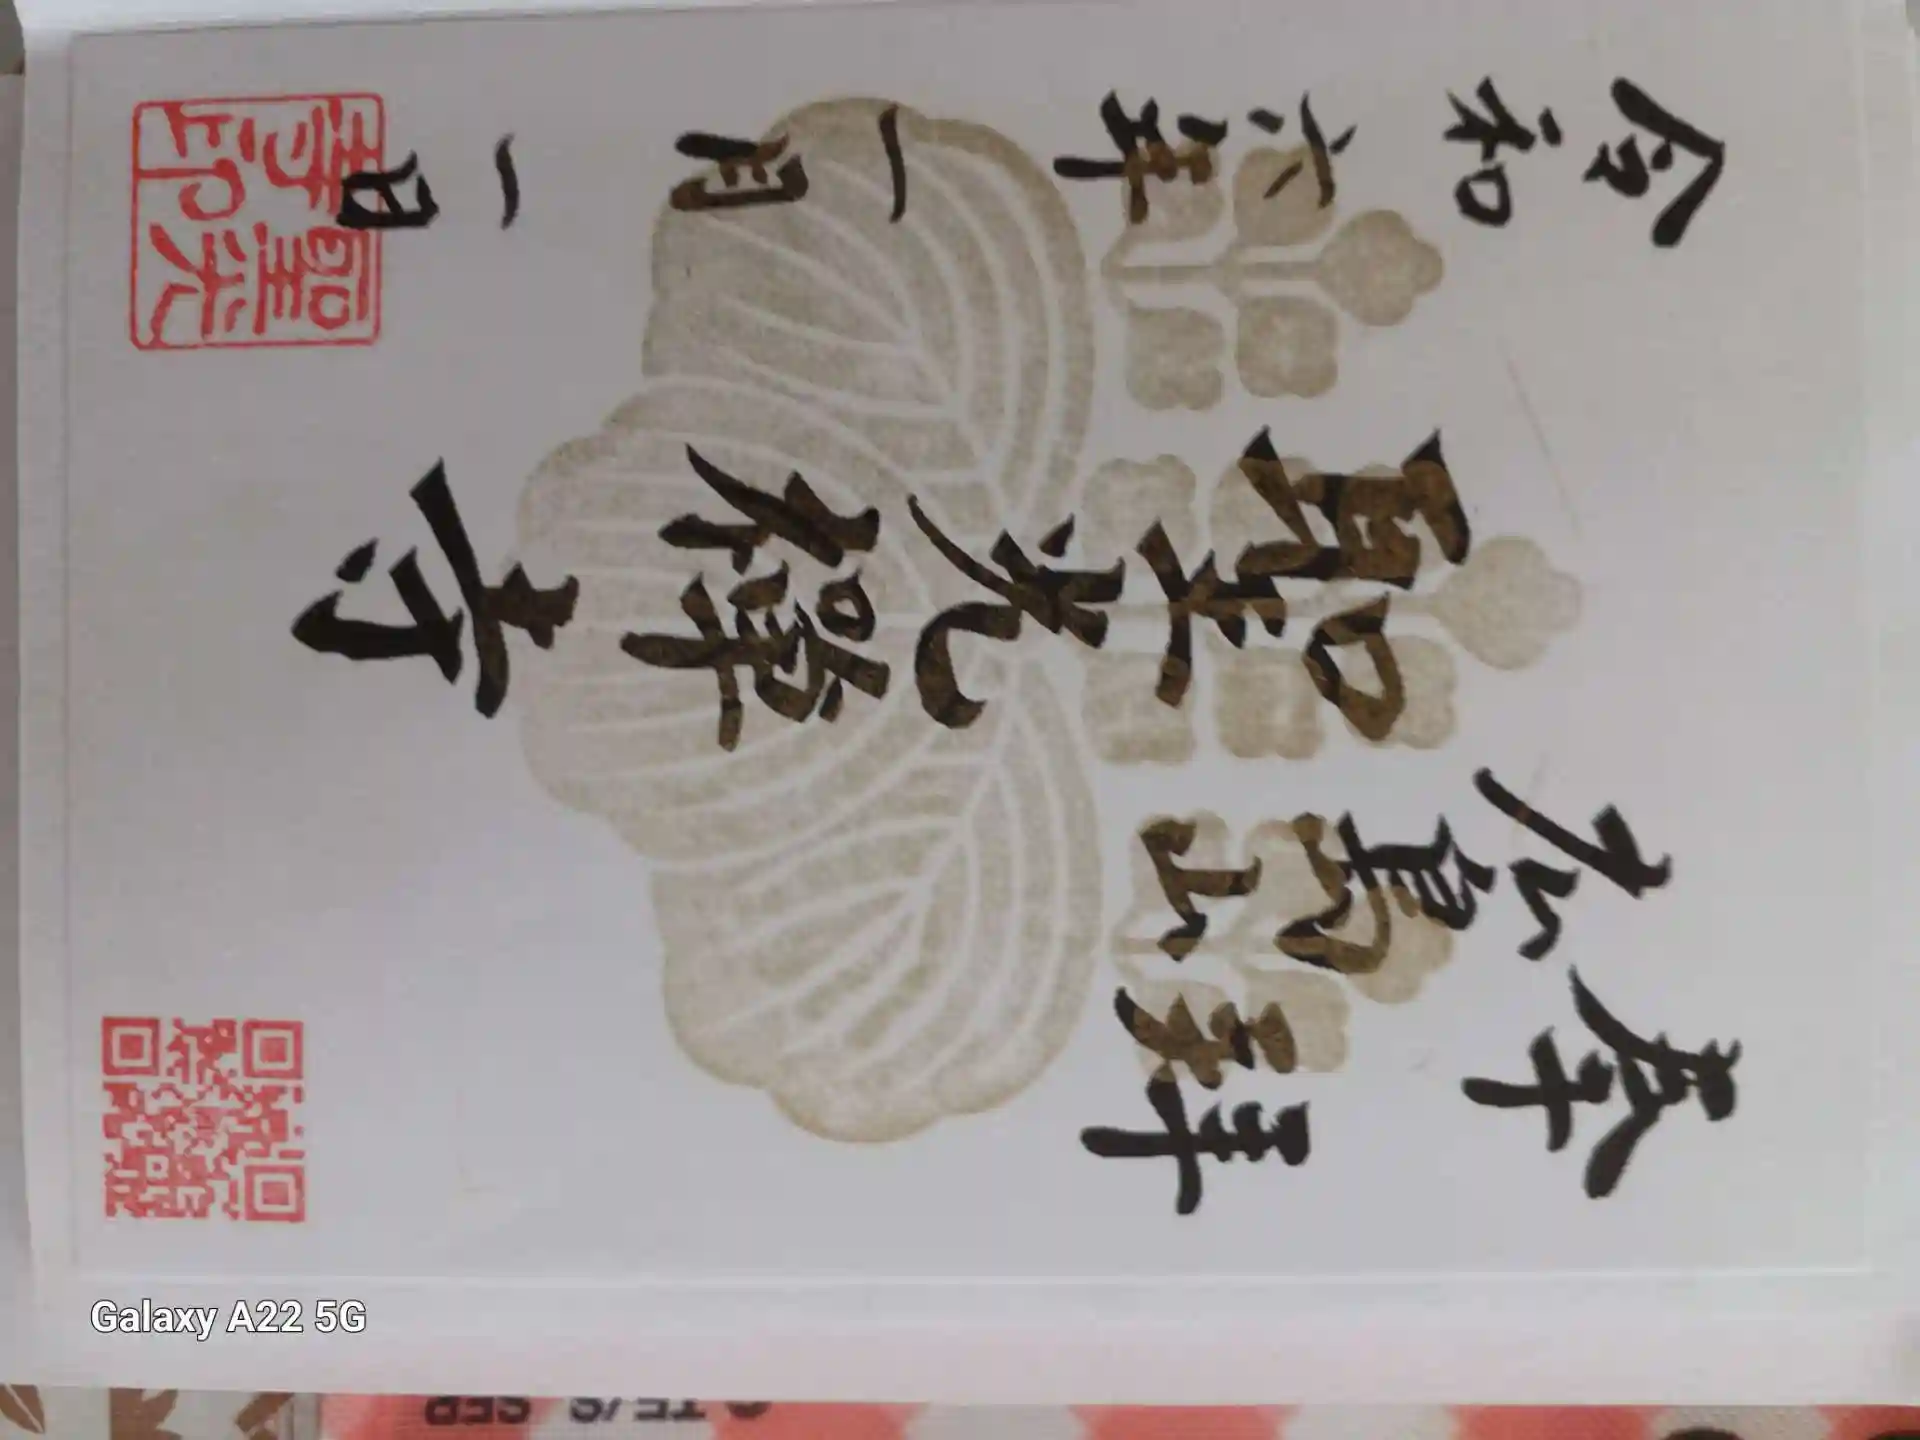 奉拝
高山
聖光禪寺
令和六年一月一日
聖光
寺印
Galaxy A22 5G